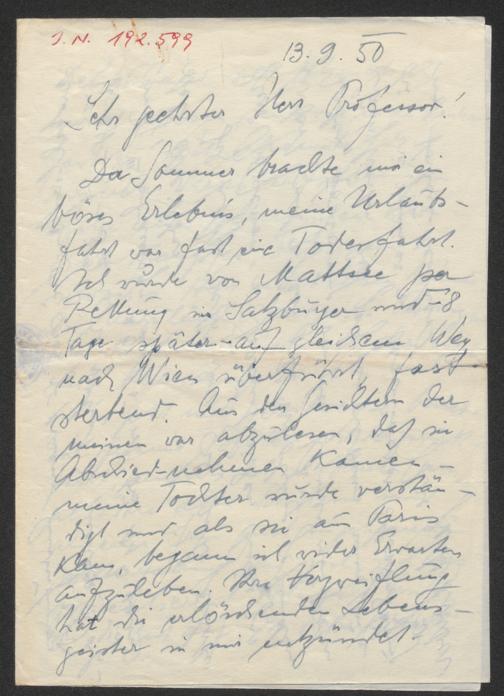 I. N. 192.599
13.9.50
Sehr geehrter Herr Professor!
Der Sommer brachte mir ein
böses Erlebnis, meine Urlaubs-
fahrt war fast eine Todesfahrt.
Ich wurde von Mattsee per
Rettung ins Salzburger und - 8
Tage später - auf gleichem Weg
nach Wien überführt, fast
sterbend. Aus den Gesichtern der
meinen war abzulesen, daß sie
Abschied-nehmen kamen -
meine Tochter wurde verstän-
digt und als sie aus Paris
kam, begann ich wider Erwarten
aufzuleben. Ihre Verzweiflung
hat die erlöschenden Lebens-
geister in mir entzündet.